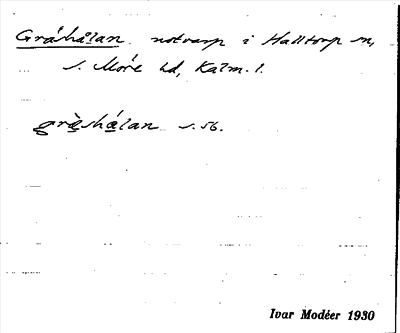 Gråhålan notvarp i Halltorp sn,
S. Möre hd, Kalm. l.
s. 56.
Ivar Modéer 1930